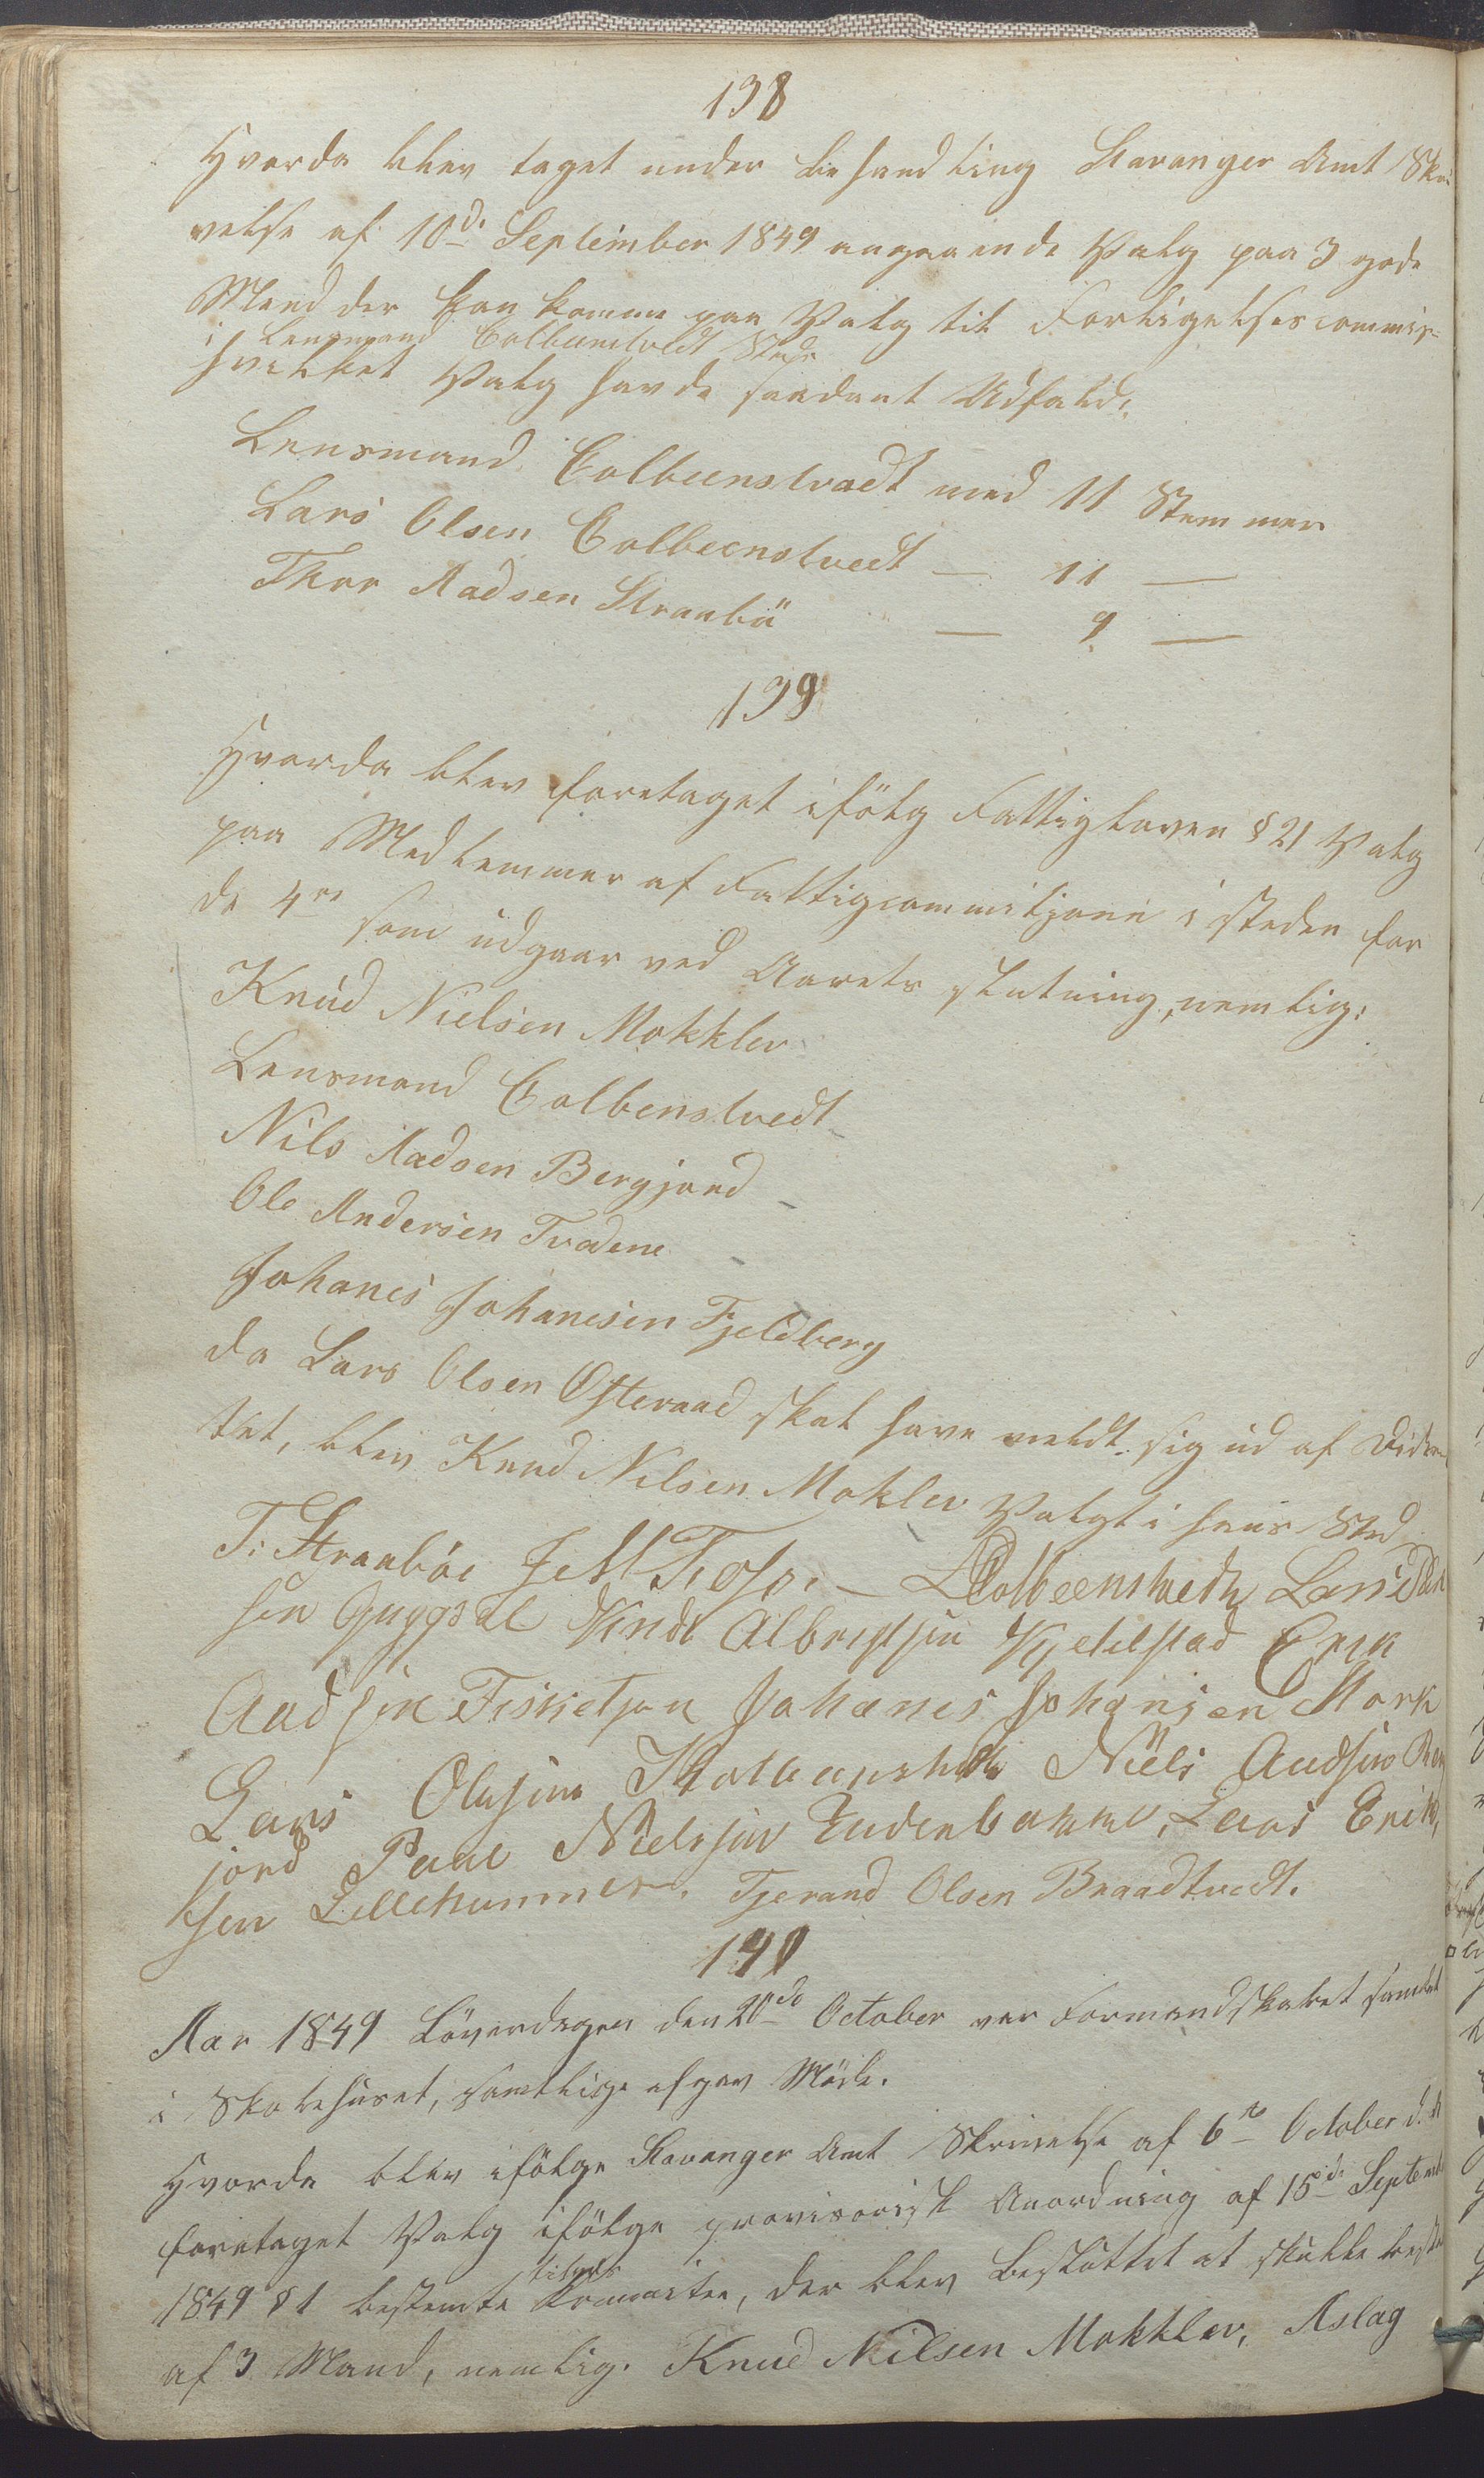 138
Hvorda blev taget under Behandling Stavanger Amt Skri
velse af 10d. September 1849 angaaende Valg paa 3 gode
Mænd der kan komme paa Valg til Forligelsescommis-
i Lensmand Colbeenstvedt Sted
hvilket Valg havde saadant Udfald:
Lensmand Colbeenstvedt med 11 Stemmer
Lars Olsen Colbeenstvedt — 11 —
Thor Aadsen Straabö — 9 —
139
Hvorda blev foretaget ifölg Fattigloven § 21 Valg
paa Medlemmer af Fattigcommisjonen i steden for
de 4re som udgaar ved Aarets slutning, nemlig:
Knud Nielsen Mokklev
Lensmand Colbenstvedt
Nils Aadsen Bergjord
Ole Andersen Tvedene
Johanes Johanesen Fjeldberg
da Lars Olsen Osteraad skal have meldt sig ud af
tet, blev Knud Nilsen Moklev Valgt i hans Sted
T: Straaböe — LColbeenstvedt Lars
sen Guggedal Knud Albregtsen Kjetelstad Erik
Aadsen Fisketjøn Johanes Johansen Mork
Lars Olusen Kolbeenstvedt Niels Audsen Berg
jord Paul Nielsen Lars Erik,
sen Lillehammer. Tjerand Olsen Braadtvedt.
140
Aar 1849 Löverdagen den 20de October var Formandskabet samlet
i Skolehuset, samtlige afgav Möde.
Hvorda blev ifölge Stavanger Amt Skrivelse af 6te October d. A
foretaget Valg ifölge provisorisk Anordning af 15de Septemb
tilsyns
1849 § 1 bestemte Komitee, der blev Besluttet at skulle bestaa
af 3 Mand, nemlig. Knud Nilsen Mokklev, Aslag